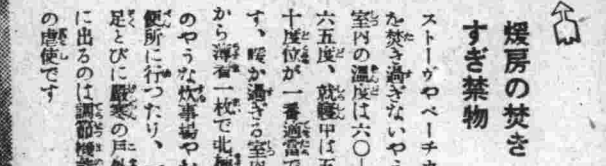 煖房の焚き
すぎ禁物
ストーヴやペーチカ
を焚き過ぎないやう
室内の温度は六〇―
六五度、就寝中は五
十度位が一番適當で
す、暖か過ぎる室内
から薄着一枚で北極
のやうな炊事場やお
便所に行つたり、一
足とびに嚴寒の戸外
に出るのは調節機能
の虐使です